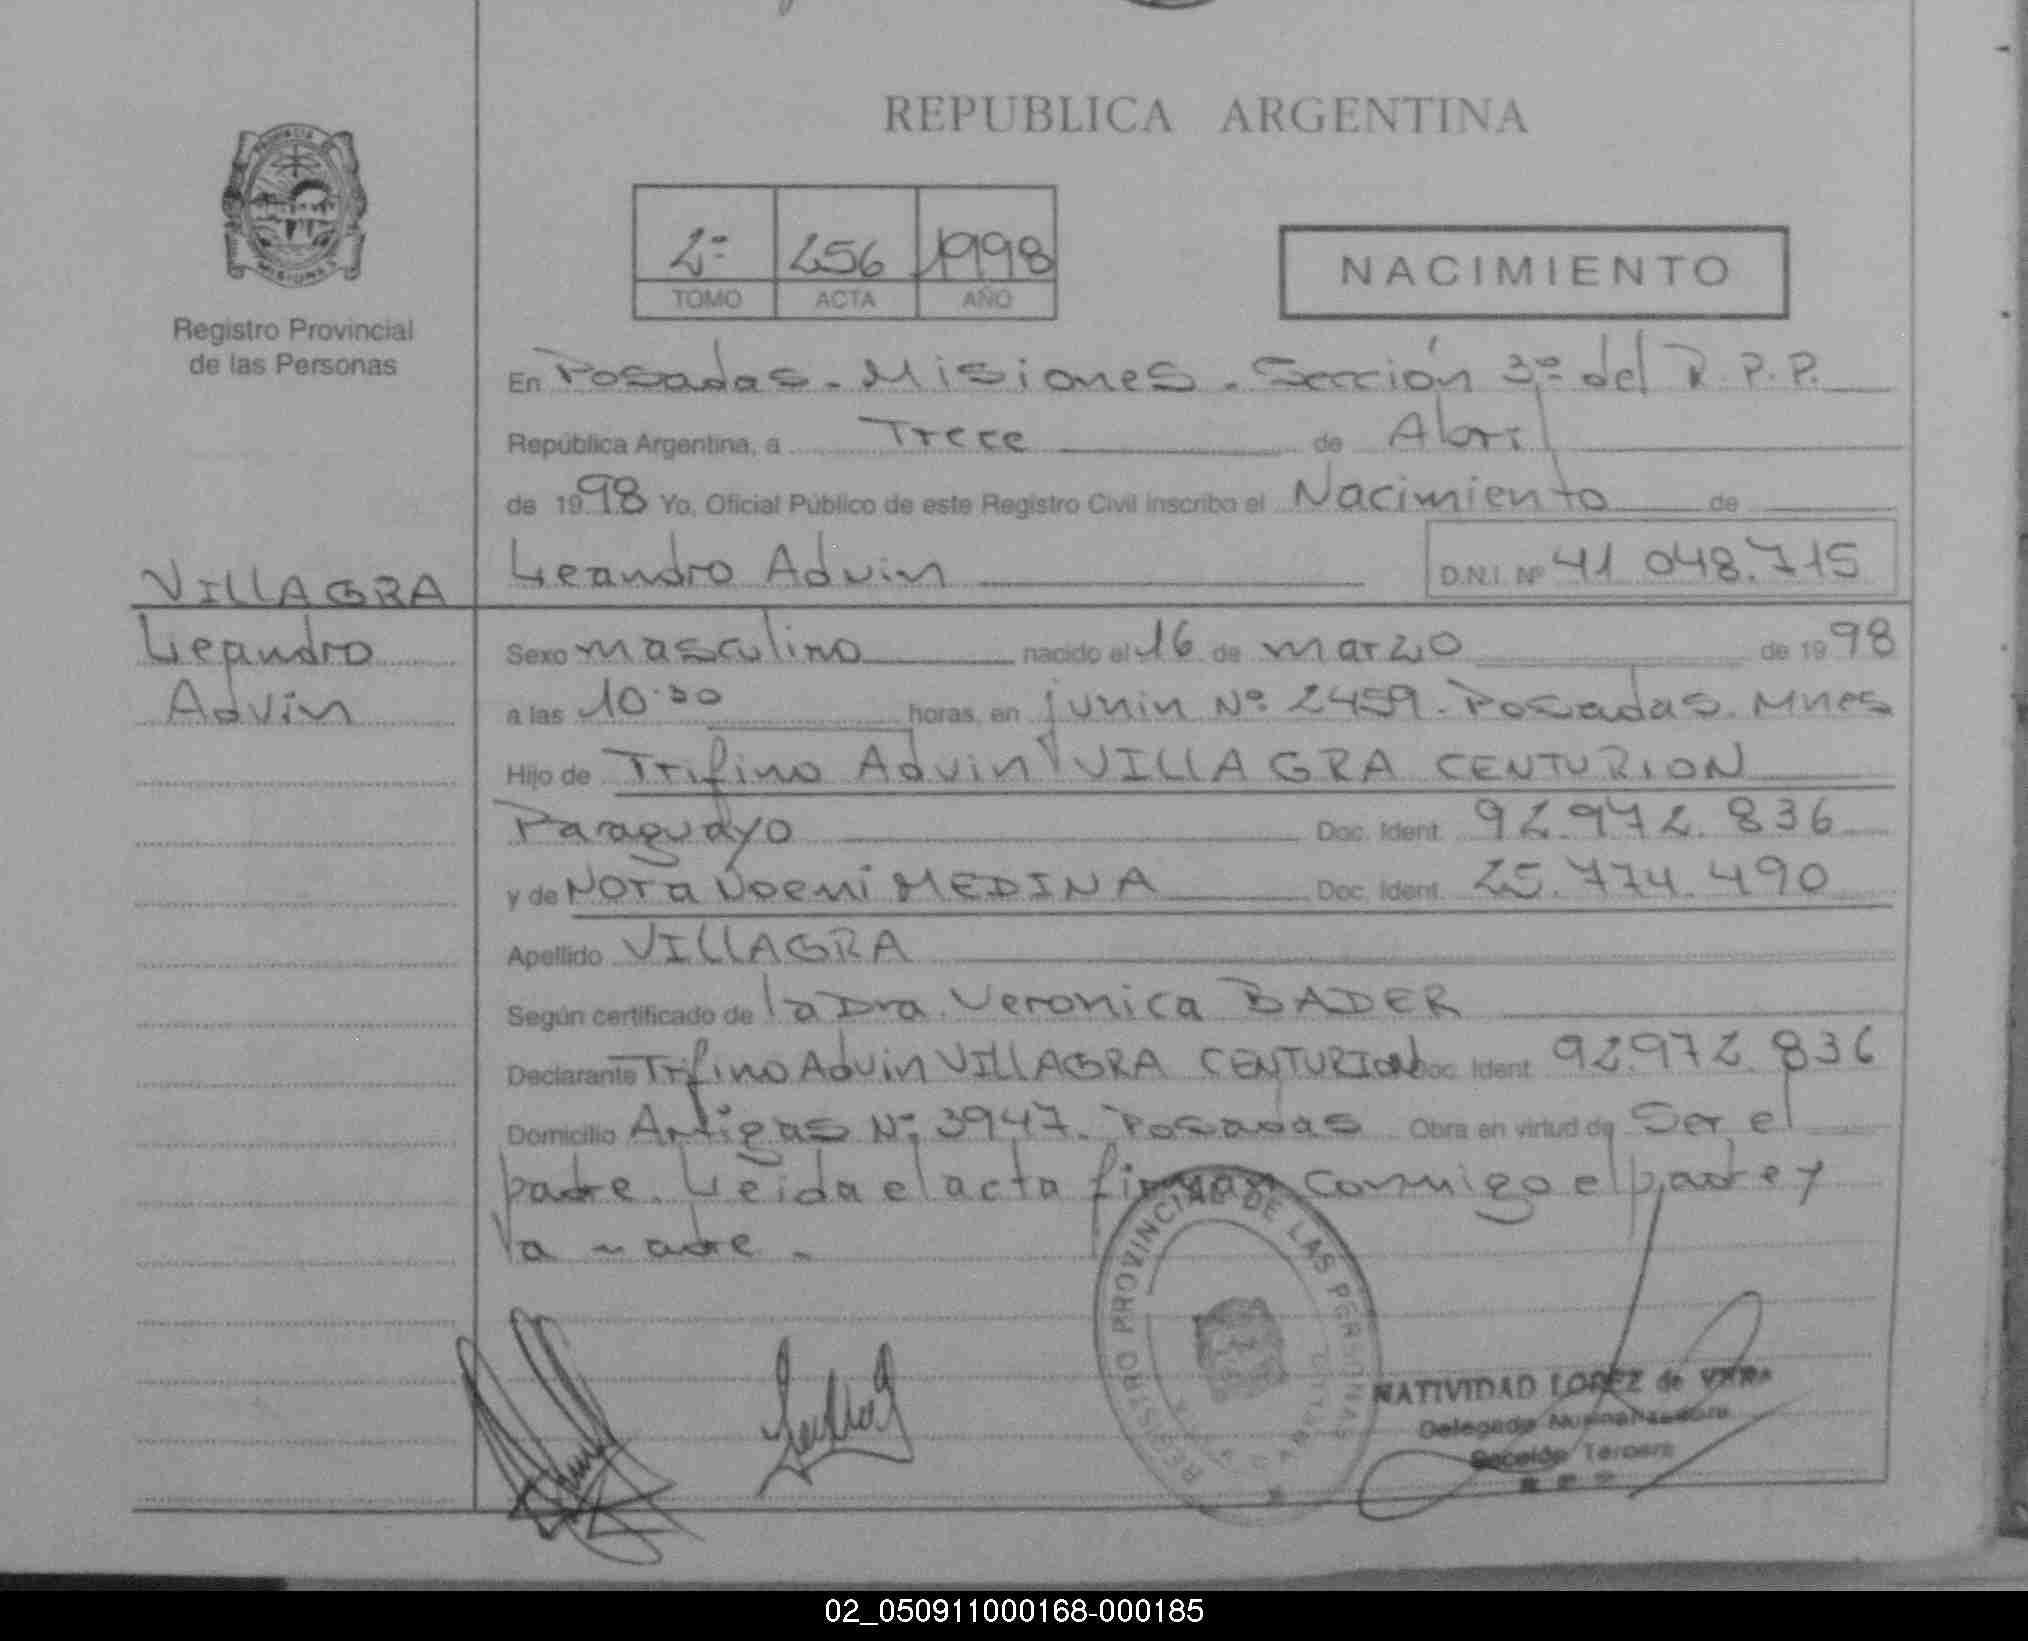 REPUBLICA ARGENTINA
PROVINCIA
MISIONES
Registro Provincial
de las Personas
2º 256 1998
TOMO ACTA AÑO
NACIMIENTO
En Posadas - Misiones - Sección 3º del R.P.P.
República Argentina, a Trece de Abril
de 1998 Yo, Oficial Público de este Registro Civil inscribo el Nacimiento de
Leandro Advin D.N.I. Nº 41 048.715
VILLAGRA
Leandro
Advin
Sexo masculino nacido el 16 de marzo de 1998
a las 10:30 horas, en junin Nº 2459 - Posadas. Mnes
Hijo de Trifino Advin VILLAGRA CENTURION
Paraguayo Doc. Ident. 92.972.836
y de Nora Noemi MEDINA Doc. Ident. 25.774.490
Apellido VILLAGRA
Según certificado de la Dra. Veronica BADER
Declarante Trifino Advin VILLAGRA CENTURION Doc. Ident. 92.972.836
Domicilio Artigas Nº 3947. Posadas Obra en virtud de Ser el
padre. Leida el acta firman conmigo el padre y
la madre.-
REGISTRO PROVINCIAL DE LAS PERSONAS
NATIVIDAD LOPEZ de
Delegada
Sección Tercera
02_050911000168-000185